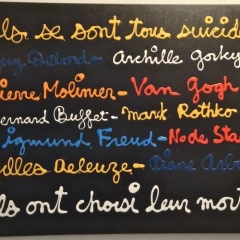 ils se sont tous suicidé
Guy Debord - Archille Gorky
Pierre Molinier - Van Gogh
Bernard Buffet - mark Rothko
Sigmund Freud - No de Sta
Gilles Deleuze - Diane Arb
ils ont choisi leur mort